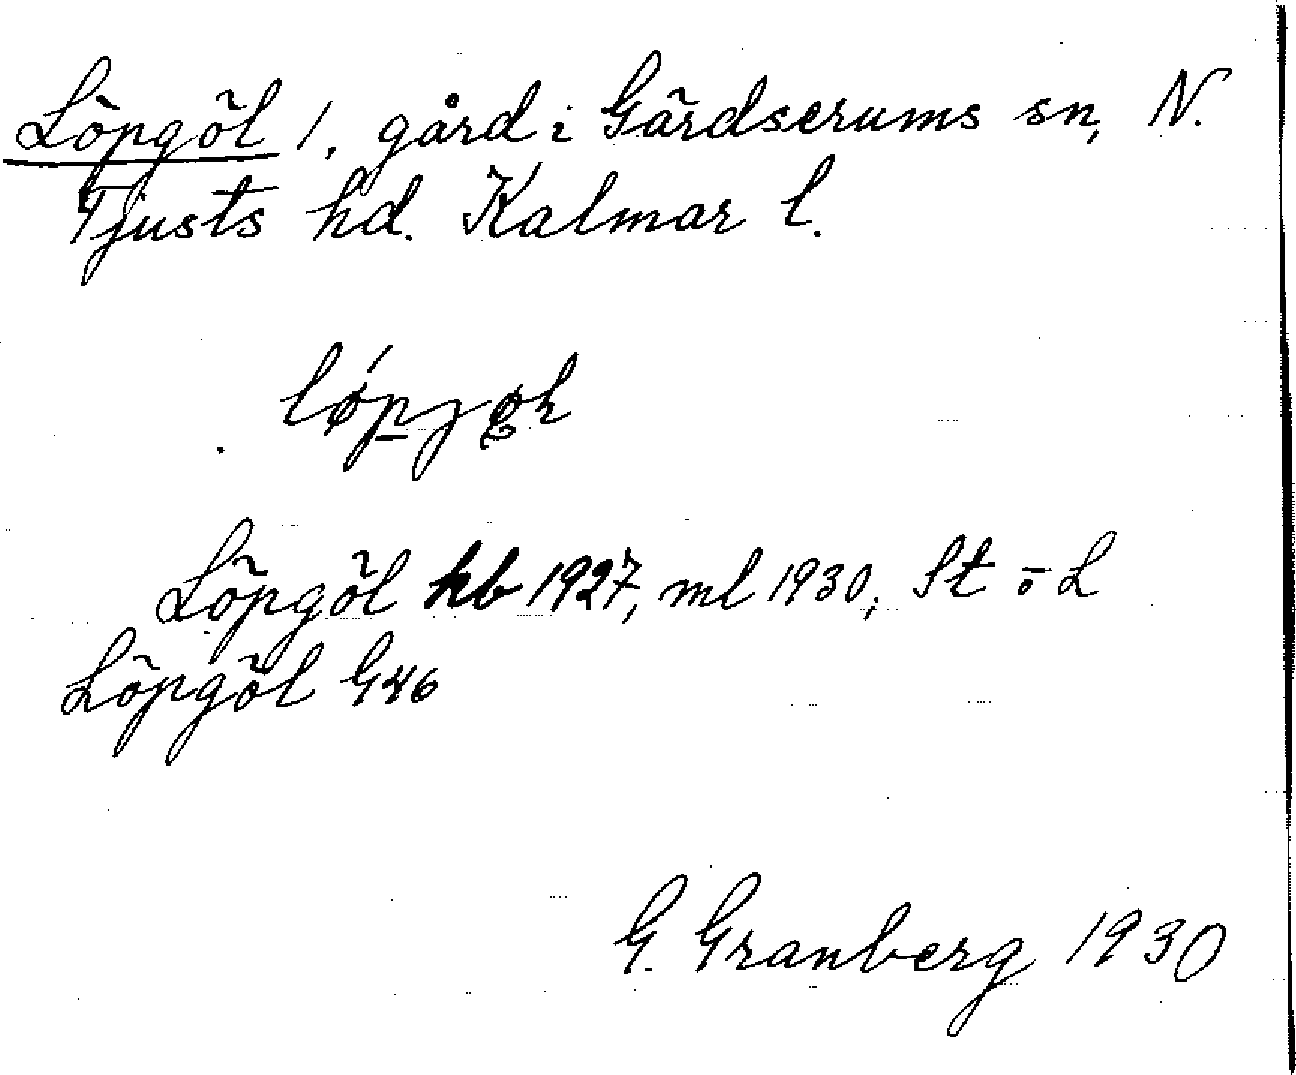 Löpgöl 1, gård i Gärdserums sn, N.
Tjusts hd. Kalmar l.
Löpgöl kb 1927, ml 1930, St o L
Löpgöl G46
G. Granberg 1930